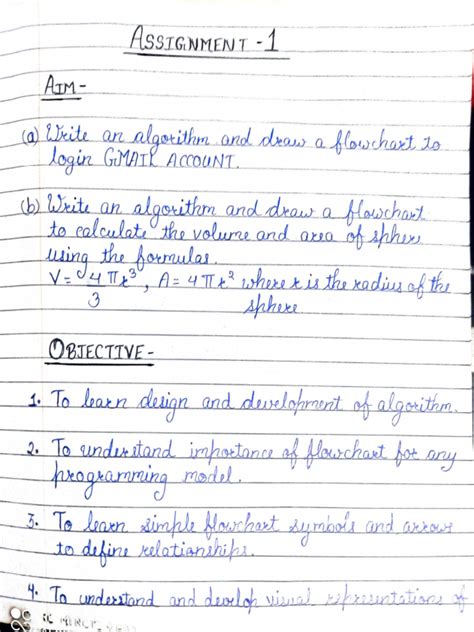 ASSIGNMENT - 1
AIM -
(a) Write an algorithm and draw a flowchart to
login GMAIL ACCOUNT.
(b) Write an algorithm and draw a flowchart
to calculate the volume and area of sphere
using the formulas.
V = 4πr³/3 , A = 4πr² where r is the radius of the
sphere
OBJECTIVE -
1. To learn design and development of algorithm.
2. To understand importance of flowchart for any
programming model.
3. To learn simple flowchart symbols and arrows
to define relationships.
4. To understand and develop visual representations of